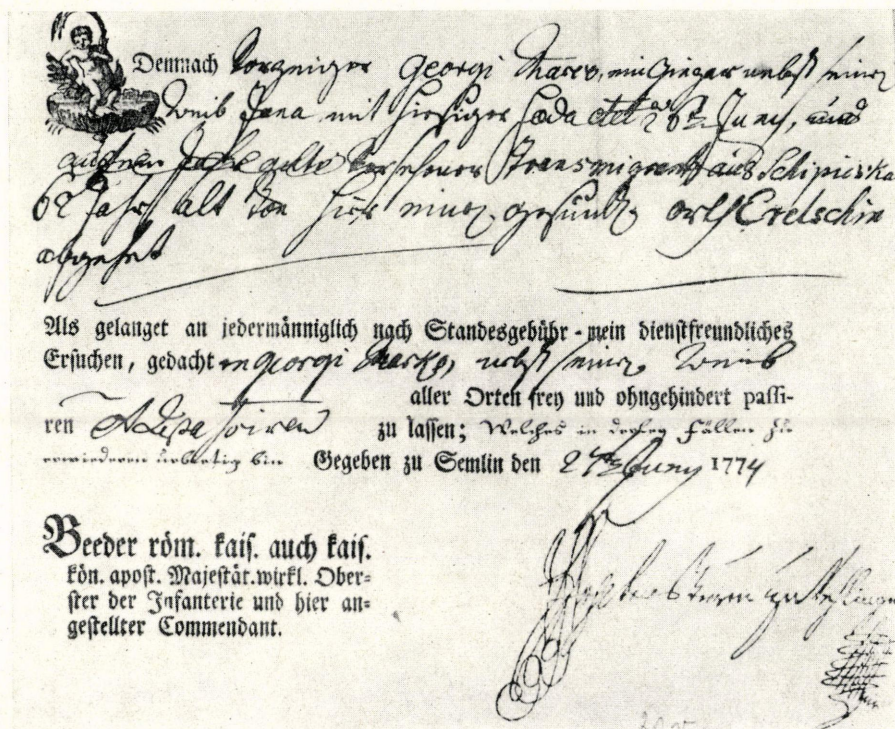 Demnach Vorzeiger Georgi Marco, ein Zingar nebst seinen
Weib Jana mit hiesiger Feda dtt 26t Juny, und
versehener Transmigrant aus Schipuska
62 Jahr alt von hier einen gesunden orth
abgehet
Als gelanget an jedermänniglich nach Standesgebühr - mein dienstfreundliches
Ersuchen, gedachten Georgi Marko, nebst seinen Weib
aller Orten frey und ohngehindert passi-
ren zu lassen; Welches in derley Fällen zu
erwiedern bin Gegeben zu Semlin den Juny 1774
Beeder röm. kais. auch kais.
kön. apost. Majestät wirkl. Ober-
ster der Infanterie und hier an-
gestellter Commendant.